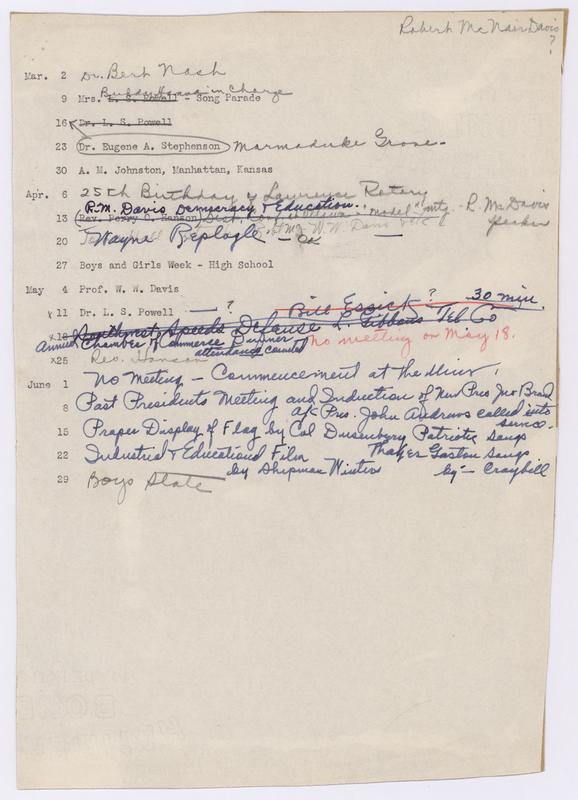 Robert McNair Davis
?
Mar. 2 Dr. Bert Nash
Buddy in Charge
9 Mrs. L. S. Powell - Song Parade
16 Dr. L. S. Powell
23 Dr. Eugene A. Stephenson Marmaduke Grove-
30 A. M. Johnston, Manhattan, Kansas
Apr. 6 25th Birthday of Lawrence Rotary
R.M. Davis Democracy & Education. - R. McDavis
13 Rev. Perry C. Hanson Dist. Conf. Ottawa - model mtg speaker
20 Wayne Replogle - OK
27 Boys and Girls Week - High School
May 4 Prof. W. W. Davis
x 11 Dr. L. S. Powell — ? Bill Essick ? 30 min.
x18 Northwest Speeds Defense L. Gibbons Tel Co
Annual Chamber of Commerce Dinner No meeting on May 18.
attendance counted
x25 Rev. Hanson
June 1 No Meeting - Commencement at the Univ.
8 Past Presidents Meeting and Induction of New Pres Jno Brand
a/c Pres. John Andrews called into service.
15 Proper Display of Flag by Col Dusenbury Patriotic songs
22 Industrial & Educational Film Thayer Gaston songs
by Shipman Winter by - Craybill
29 Boys State